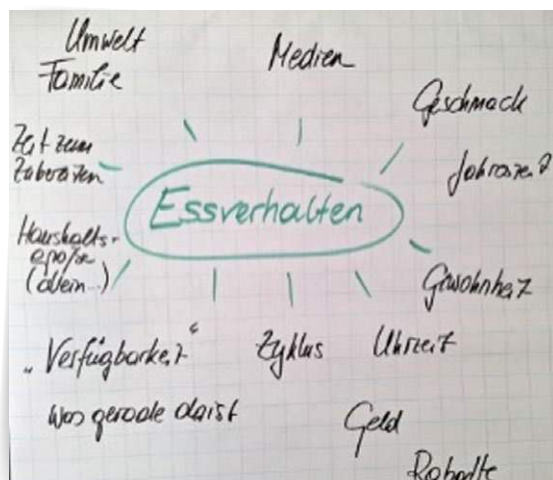 Umwelt
Familie
Medien
Geschmack
Zeit zum
Zubereiten
Essverhalten
Haushalts-
(allein...)
Gewohnheit
„Verfügbarkeit“
was gerade da ist
Zyklus
Uhrzeit
Geld